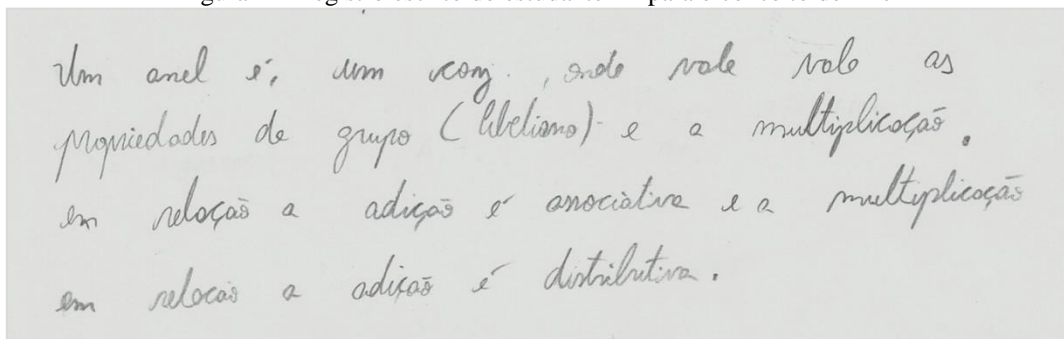 Um anel é, um conj. , onde vale vale as
propriedades de grupo (Abeliano) e a multiplicação.
em relação a adição é associativa e a multiplicação
em relação a adição é distributiva.